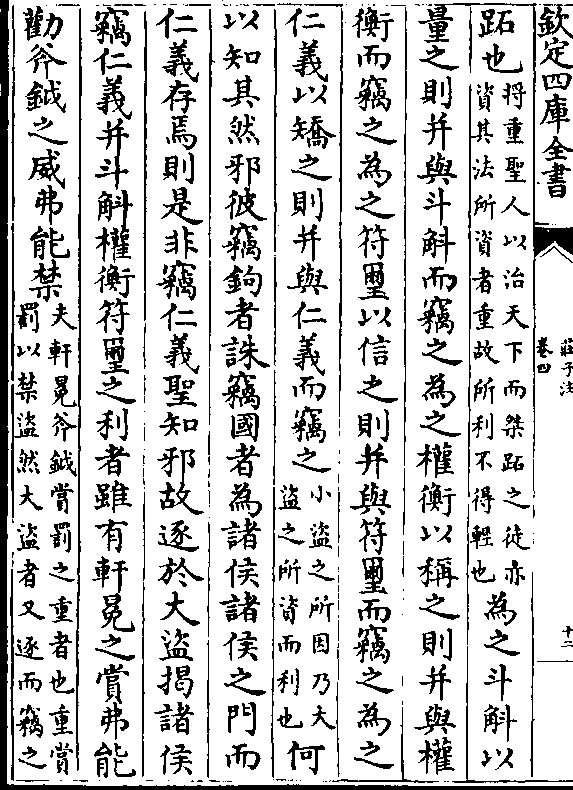 欽定四庫全書
莊子注
卷四
十二
跖也將重聖人以治天下而桀跖之徒亦資其法所資者重故所利不得輕也為之斗斛以
量之則并與斗斛而竊之為之權衡以稱之則并與權
衡而竊之為之符璽以信之則并與符璽而竊之為之
仁義以矯之則并與仁義而竊之小盜之所困乃大盜之所資而利也何
以知其然邪彼竊鉤者誅竊國者為諸侯諸侯之門而
仁義存焉則是非竊仁義聖知邪故逐於大盜揭諸侯
竊仁義并斗斛權衡符璽之利者雖有軒冕之賞弗能
勸斧鉞之威弗能禁夫軒冕斧鉞賞罰之重者也重賞罰以禁盜然大盜者又逐而竊之